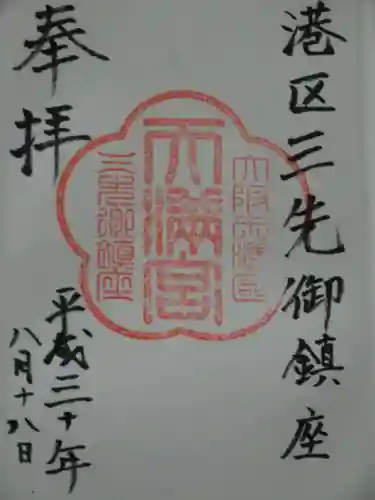 港区三先御鎮座
大阪市港区
天満宮
三先御鎮座
奉拝
平成三十年
八月十八日